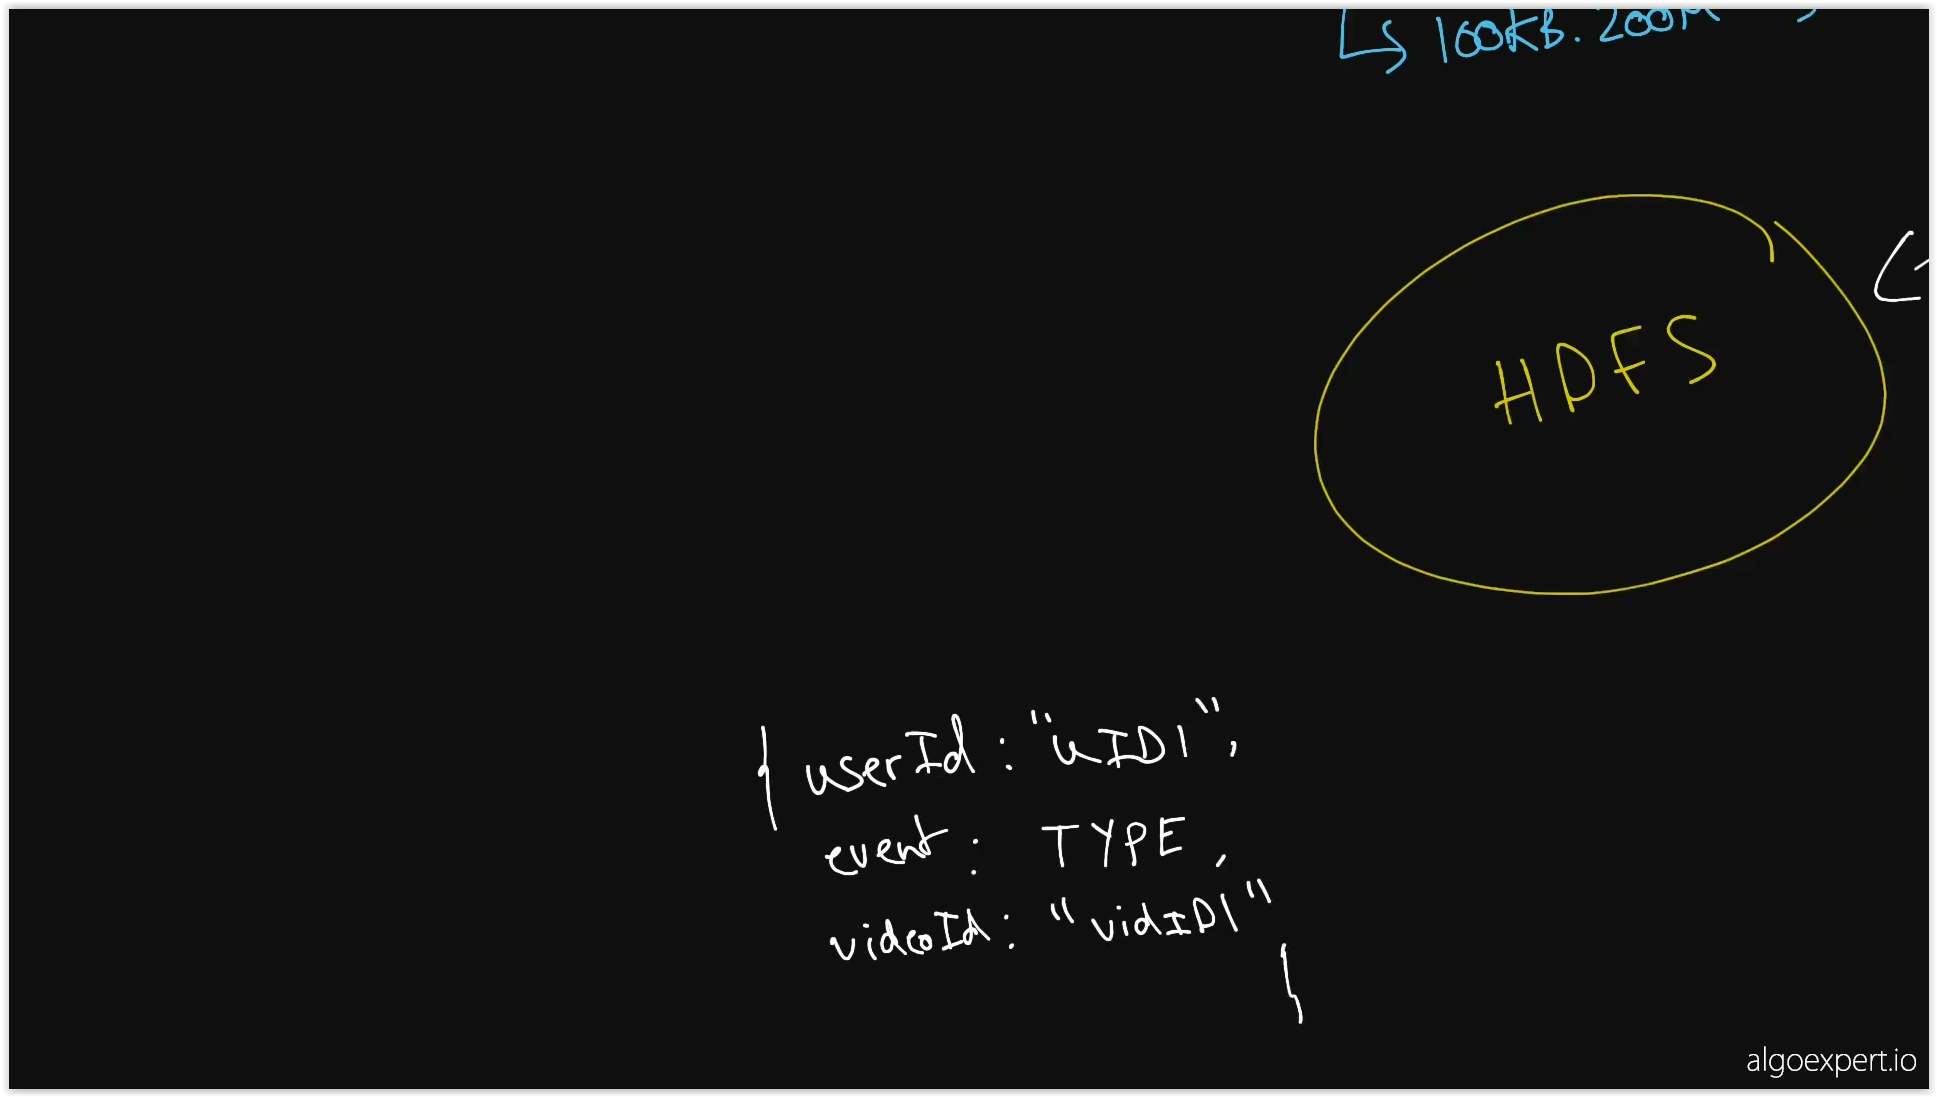 ↳ 100KB. 200M
HDFS
{ userId : "uID1",
event : TYPE,
videoId : "vidID1"
}
algoexpert.io